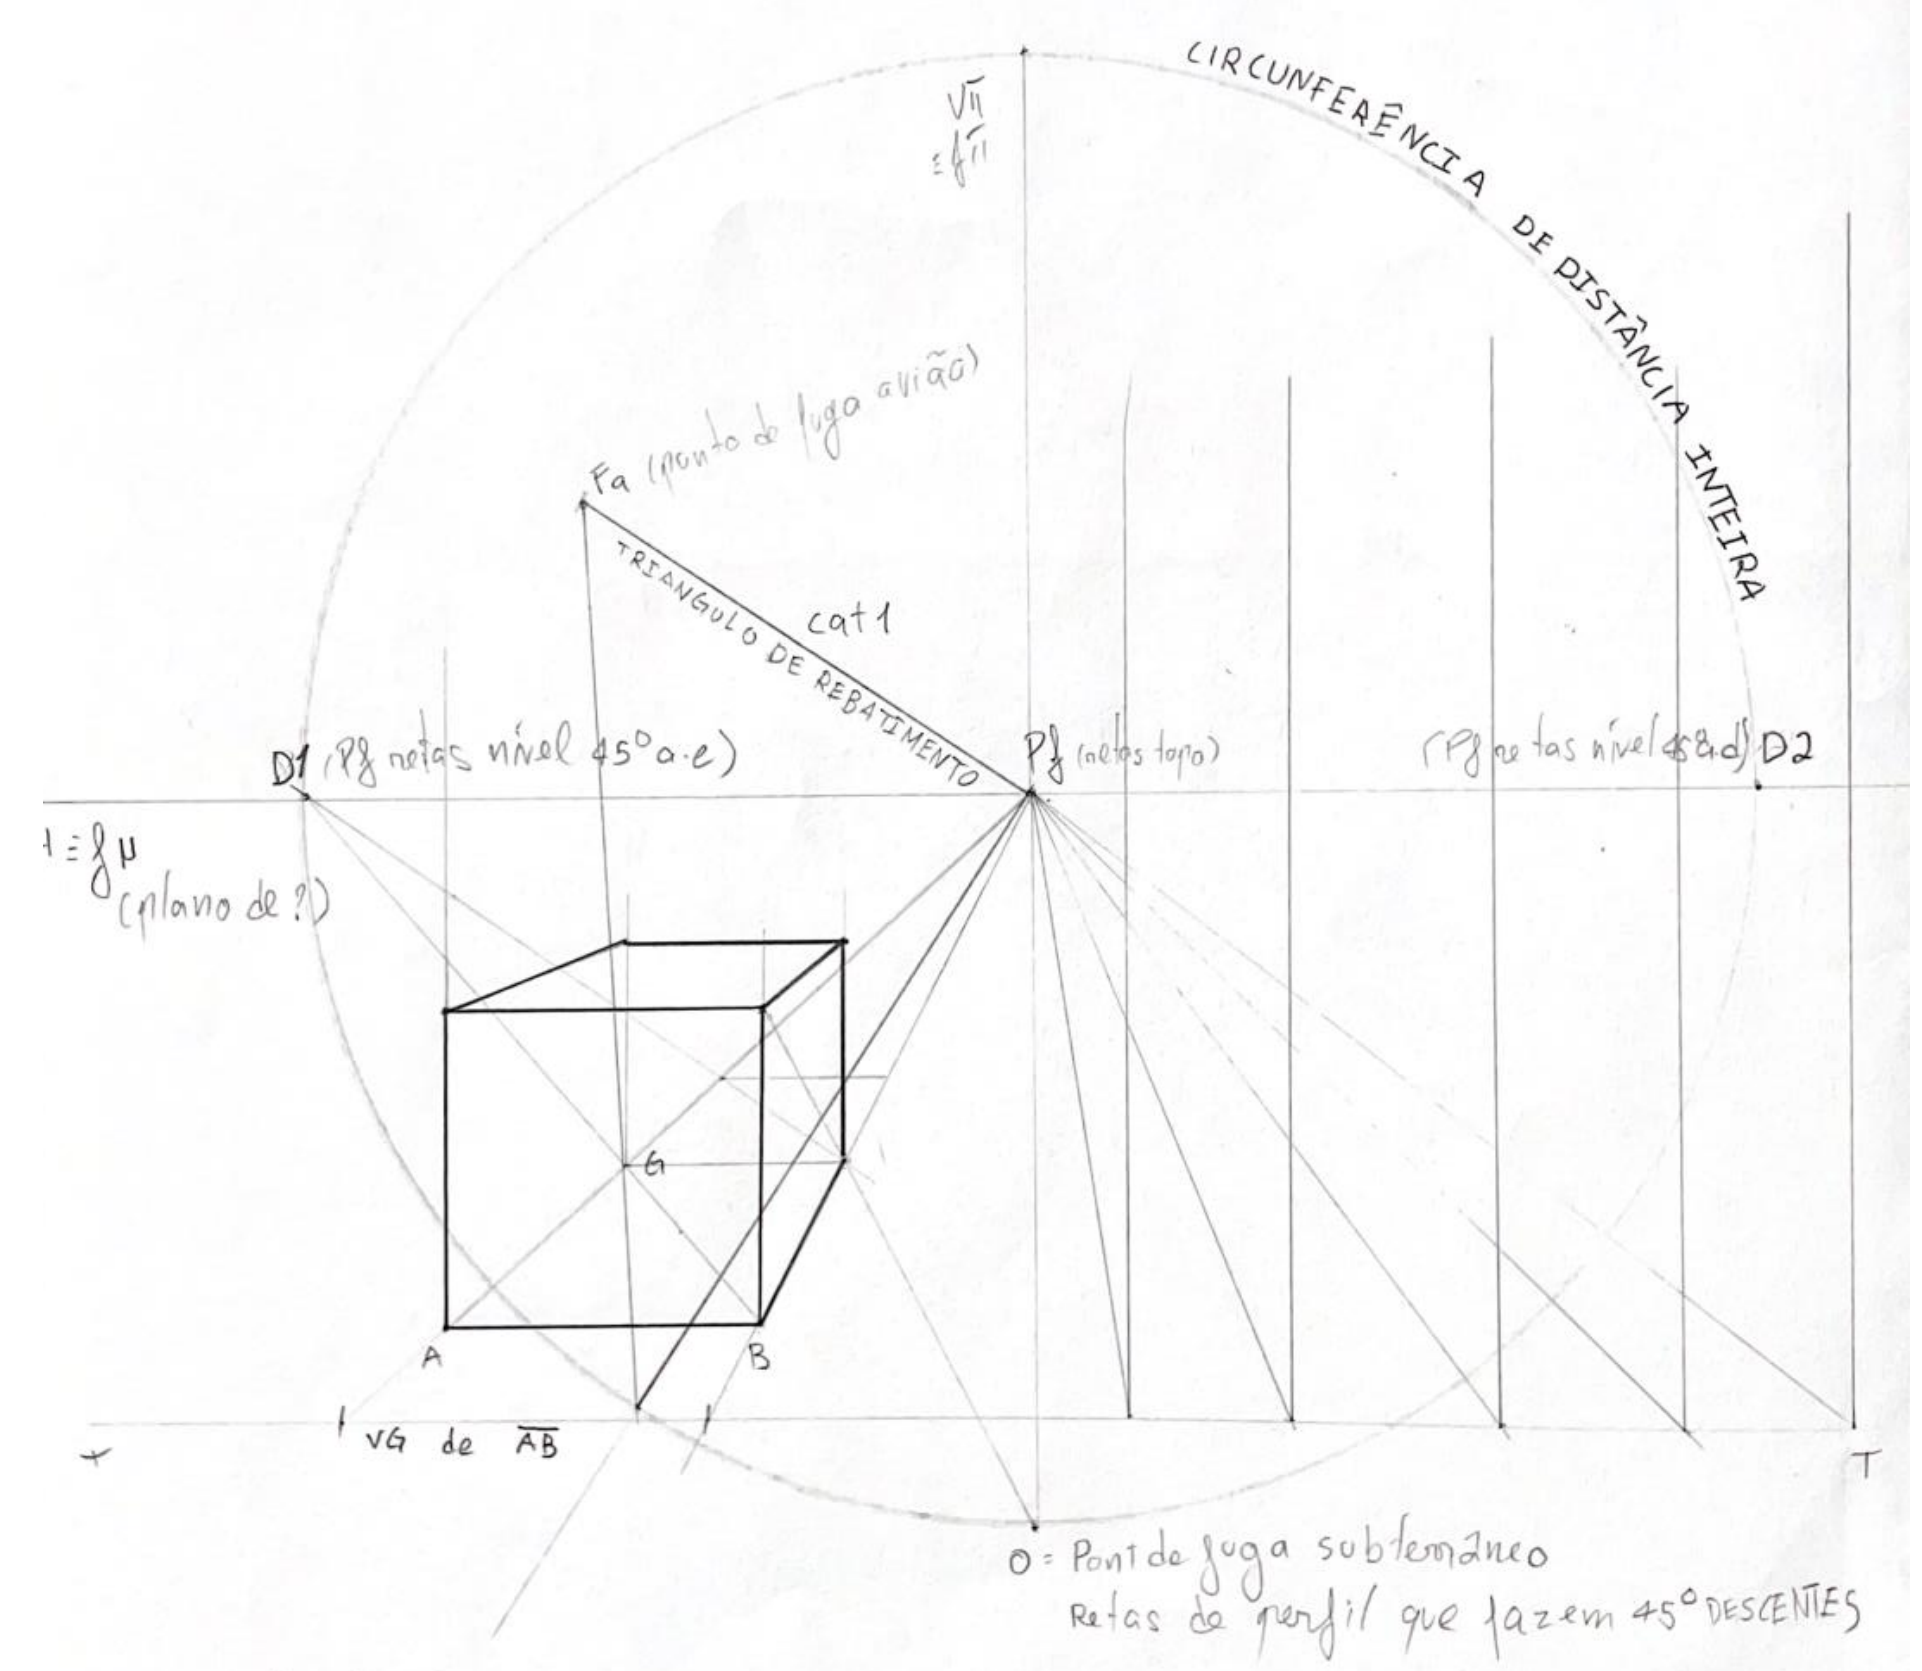 CIRCUNFERÊNCIA DE DISTÂNCIA INTEIRA
Vπ
≡ fπ
Fa (ponto de fuga avião)
TRIANGULO DE REBATIMENTO
cat 1
D1 (Pf retas nível 45º a.e)
Pf (retas topo)
(Pf retas nível 45º a.d) D2
≡ fμ
(plano de ?)
G
A
B
VG de AB
T
O = Pont de fuga subterrâneo
Retas de perfil que fazem 45º DESCENTES